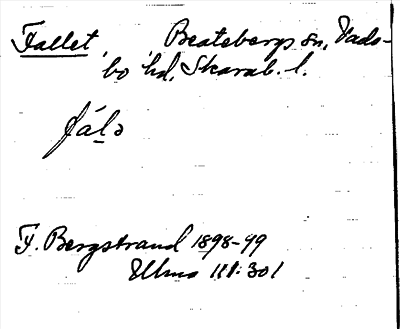 Fallet, Beatebergs sn, Vads-
bo hd, Skarab. l.
fálɔ
F. Bergstrand 1898-99
Ullma 111:301